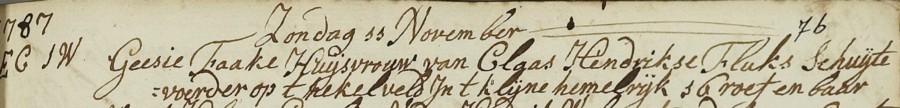 1787 Zondag 11 November 76
EC 1W Geesie Faake Huijsvrouw van Claas Hendrikse Fluks Schuijte
=voerder op t hekelveld In t klijne hemelrijk 16 roef en baar